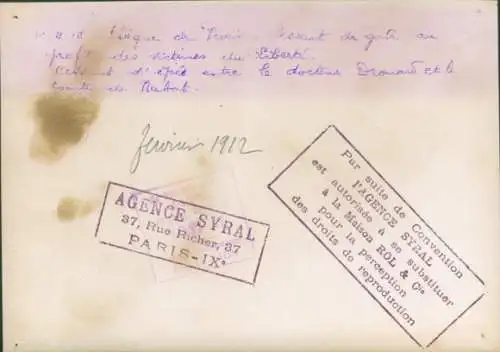 de gala au
des victimes du "Liberté".
l'assaut d'épée entre le docteur Drouard et le
comte de
février 1912
AGENCE SYRAL
37, Rue Richer, 37
PARIS-IXe
Par suite de Convention
l'AGENCE SYRAL
est autorisée à se substituer
à la Maison ROL & Cie
pour la perception
des droits de reproduction